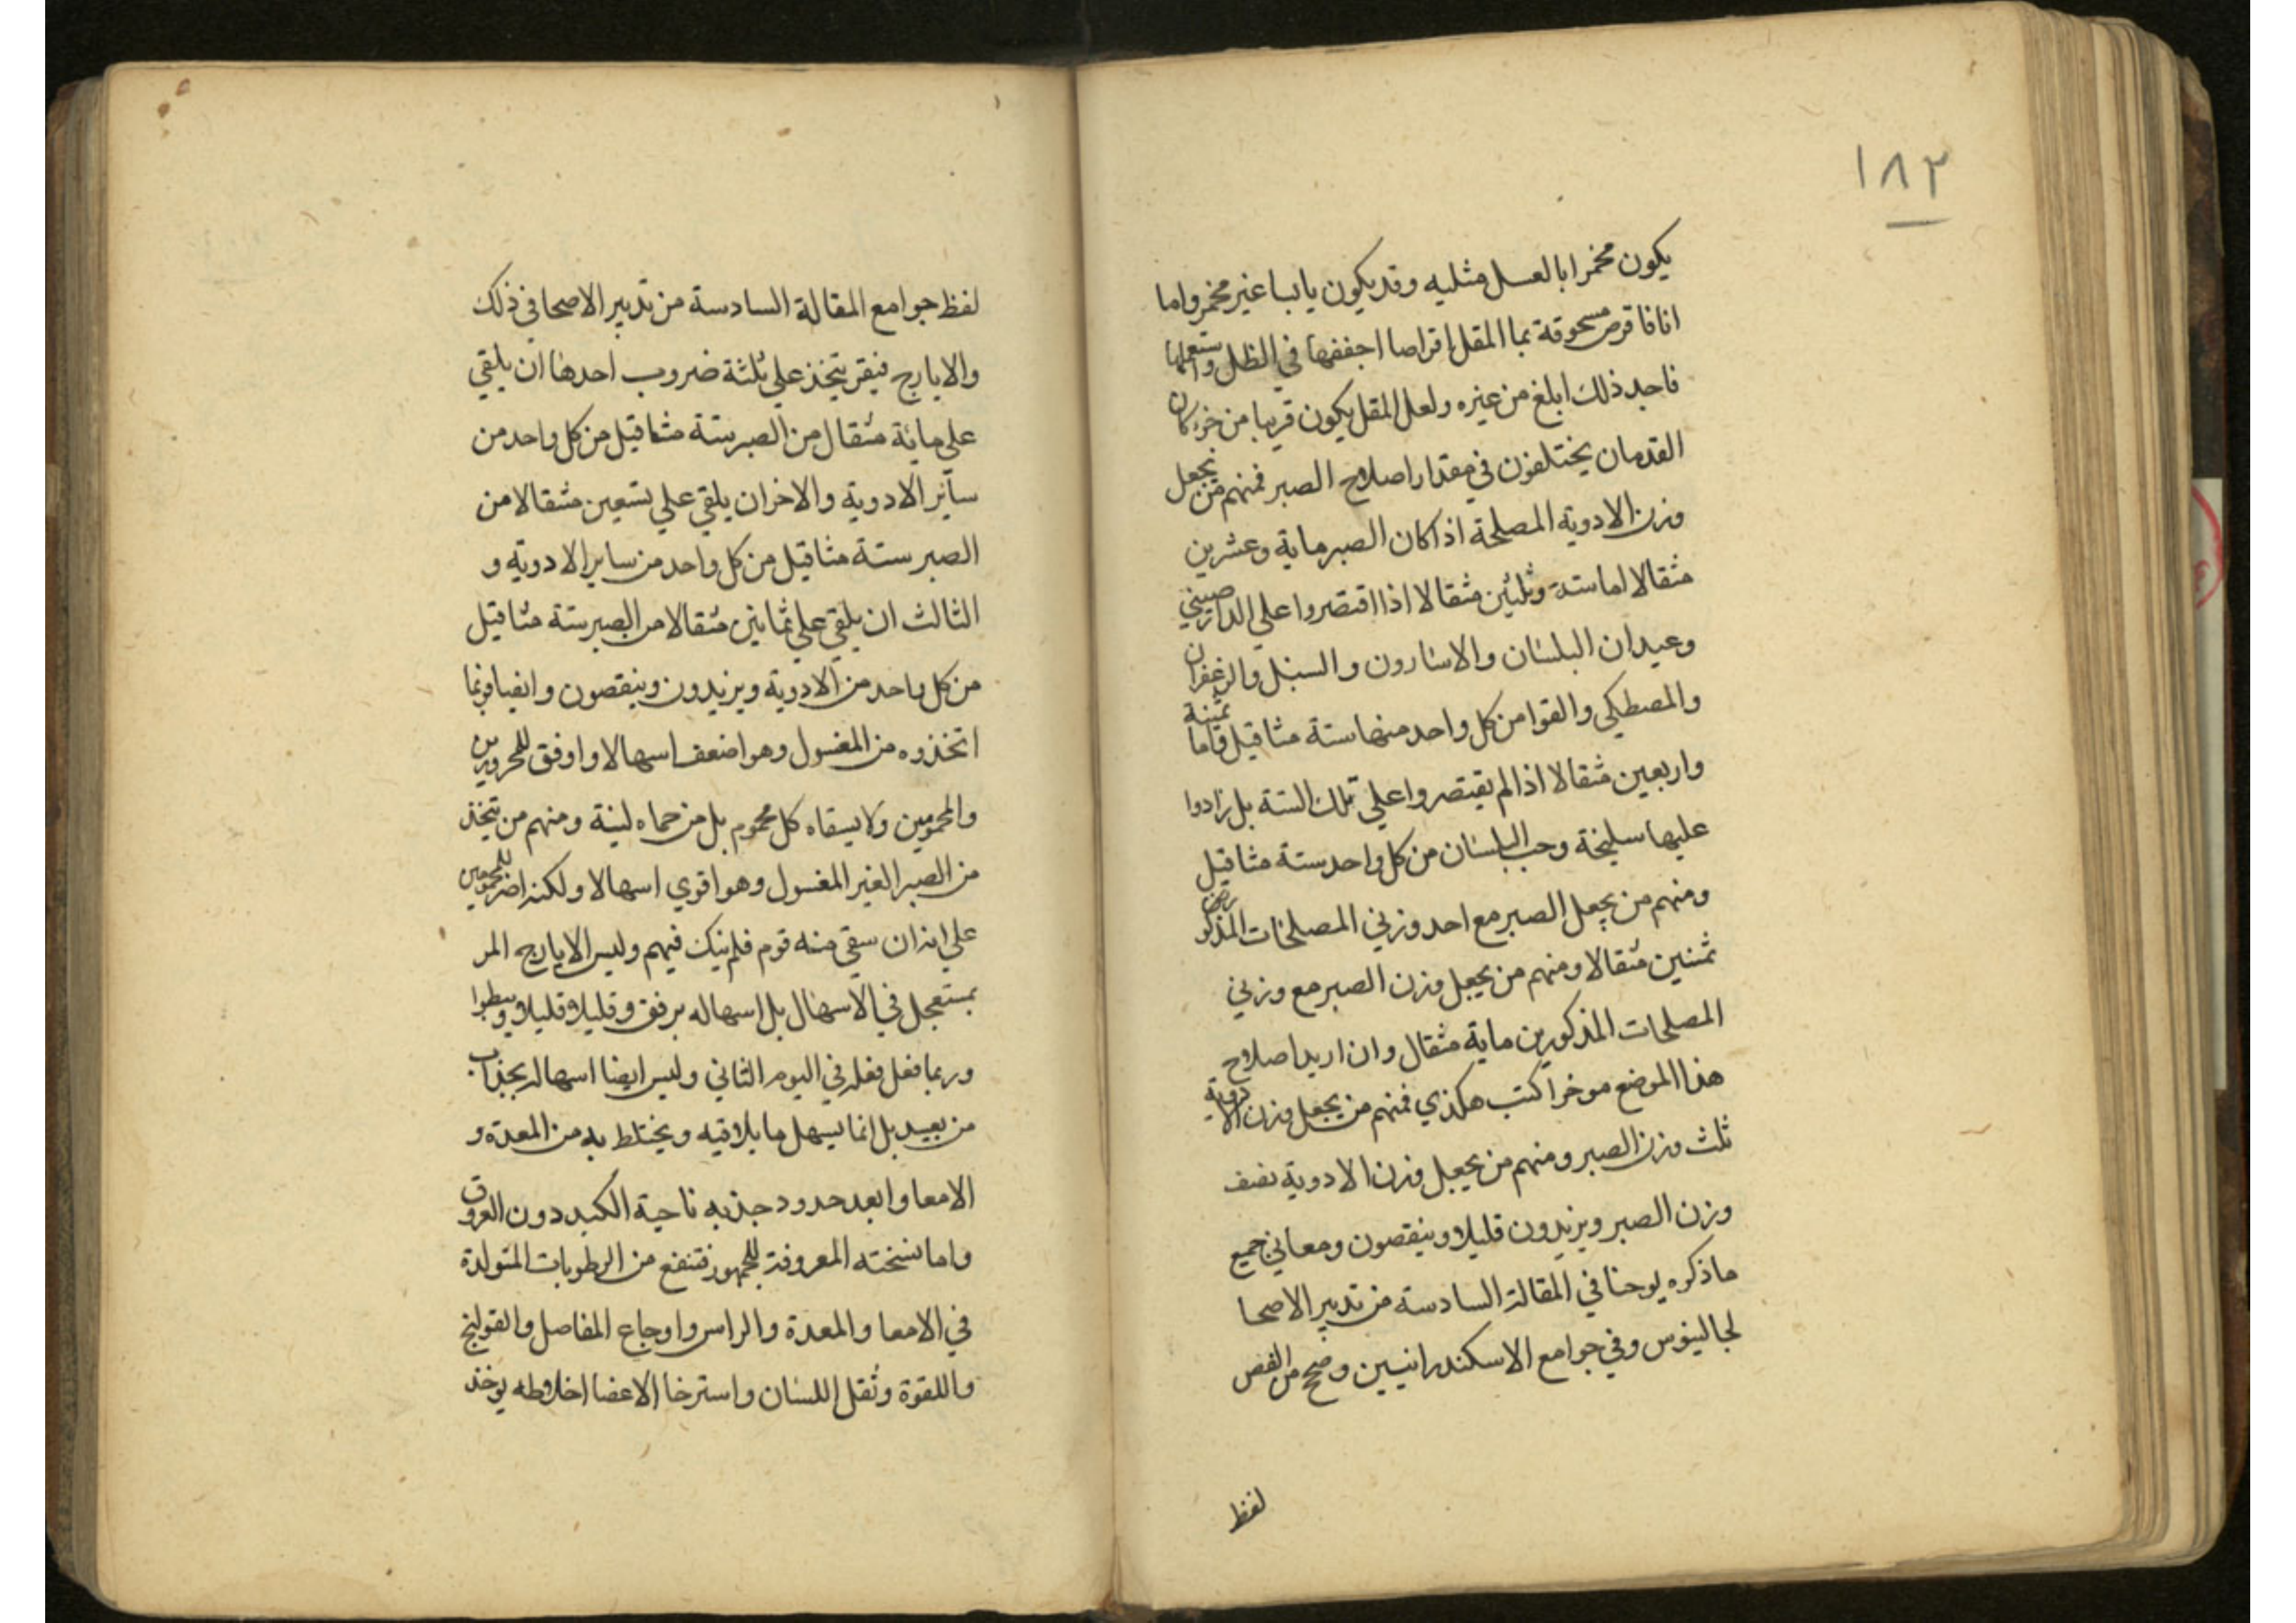 ١٨٣
يكون مخمرا بالعسل مثليه وقد يكون يابسا غير مخمر واما
انا فاقرص مسحوقة بما المقل اقراصا اجففها في الظل واستعملها
فاجد ذلك ابلغ من غيره ولعل المقل يكون قريبا من جزء كان
القدمان يختلفون في مقدار اصلاح الصبر فمنهم من يجعل
وزن الادوية المصلحة اذا كان الصبر ماية وعشرين
مثقالا اما ستة وثلثين مثقالا اذا اقتصروا علي الدارصيني
وعيدان البلسان والاسارون والسنبل والزعفران
والمصطكي والقوا من كل واحد منها ستة مثاقيل واما ثمنية
واربعين مثقالا اذا لم يقتصروا علي تلك الستة بل زادوا
عليها سليخة وحب البلسان من كل واحد ستة مثاقيل
ومنهم من يجعل الصبر مع احد وزني المصلحات المذكو
ثمنين مثقالا ومنهم من يجعل وزن الصبر مع وزني
المصلحات المذكورين ماية مثقال وان اريد اصلاح
هذا الموضع موخرا كتب هكذي فمنهم من يجعل وزن الادوية
ثلث وزن الصبر ومنهم من يجعل وزن الادوية نصف
وزن الصبر ويزيدون قليلا وينقصون ومعاني جميع
ما ذكره يوحنا في المقالة السادسة من تدبير الاصحا
لجالينوس وفي جوامع الاسكندرانيين وضح من الفص
لفظ
لفظ جوامع المقالة السادسة من تدبير الاصحا في ذلك
والايارج فيقر يتخذ علي ثلثة ضروب احدها ان يلقي
علي ماية مثقال من الصبر ستة مثاقيل من كل واحد من
سائر الادوية والاخر ان يلقي علي تسعين مثقالا من
الصبر ستة مثاقيل من كل واحد من ساير الادوية و
الثالث ان يلقي علي ثمانين مثقالا من الصبر ستة مثاقيل
من كل واحد من الادوية ويزيدون وينقصون وايضا وربما
اتخذوه من المغسول وهو اضعف اسهالا واوفق للمحرورين
والمحمومين ولا يسقاه كل محموم بل من حماه لينة ومنهم من يتخذ
من الصبر الغير المغسول وهو اقوي اسهالا ولكنه اضر للمحمومين
علي انه ان سقي منه قوم فلم ينك فيهم وليس الايارج المر
بمستعجل في الاسهال بل اسهاله برفق وقليلا قليلا
وربما فعل فعله في اليوم الثاني وليس ايضا اسهاله بجذاب
من بعيد بل انما يسهل ما يلاقيه ويختلط به من المعدة و
الامعا وابعد حدود جذبه ناحية الكبد دون العروق
واما نسخته المعروفة للجمهور فتنفع من الرطوبات المتولدة
في الامعا والمعدة والراس واوجاع المفاصل والقولنج
واللقوة وثقل اللسان واسترخا الاعضا اخلاطه يوخذ